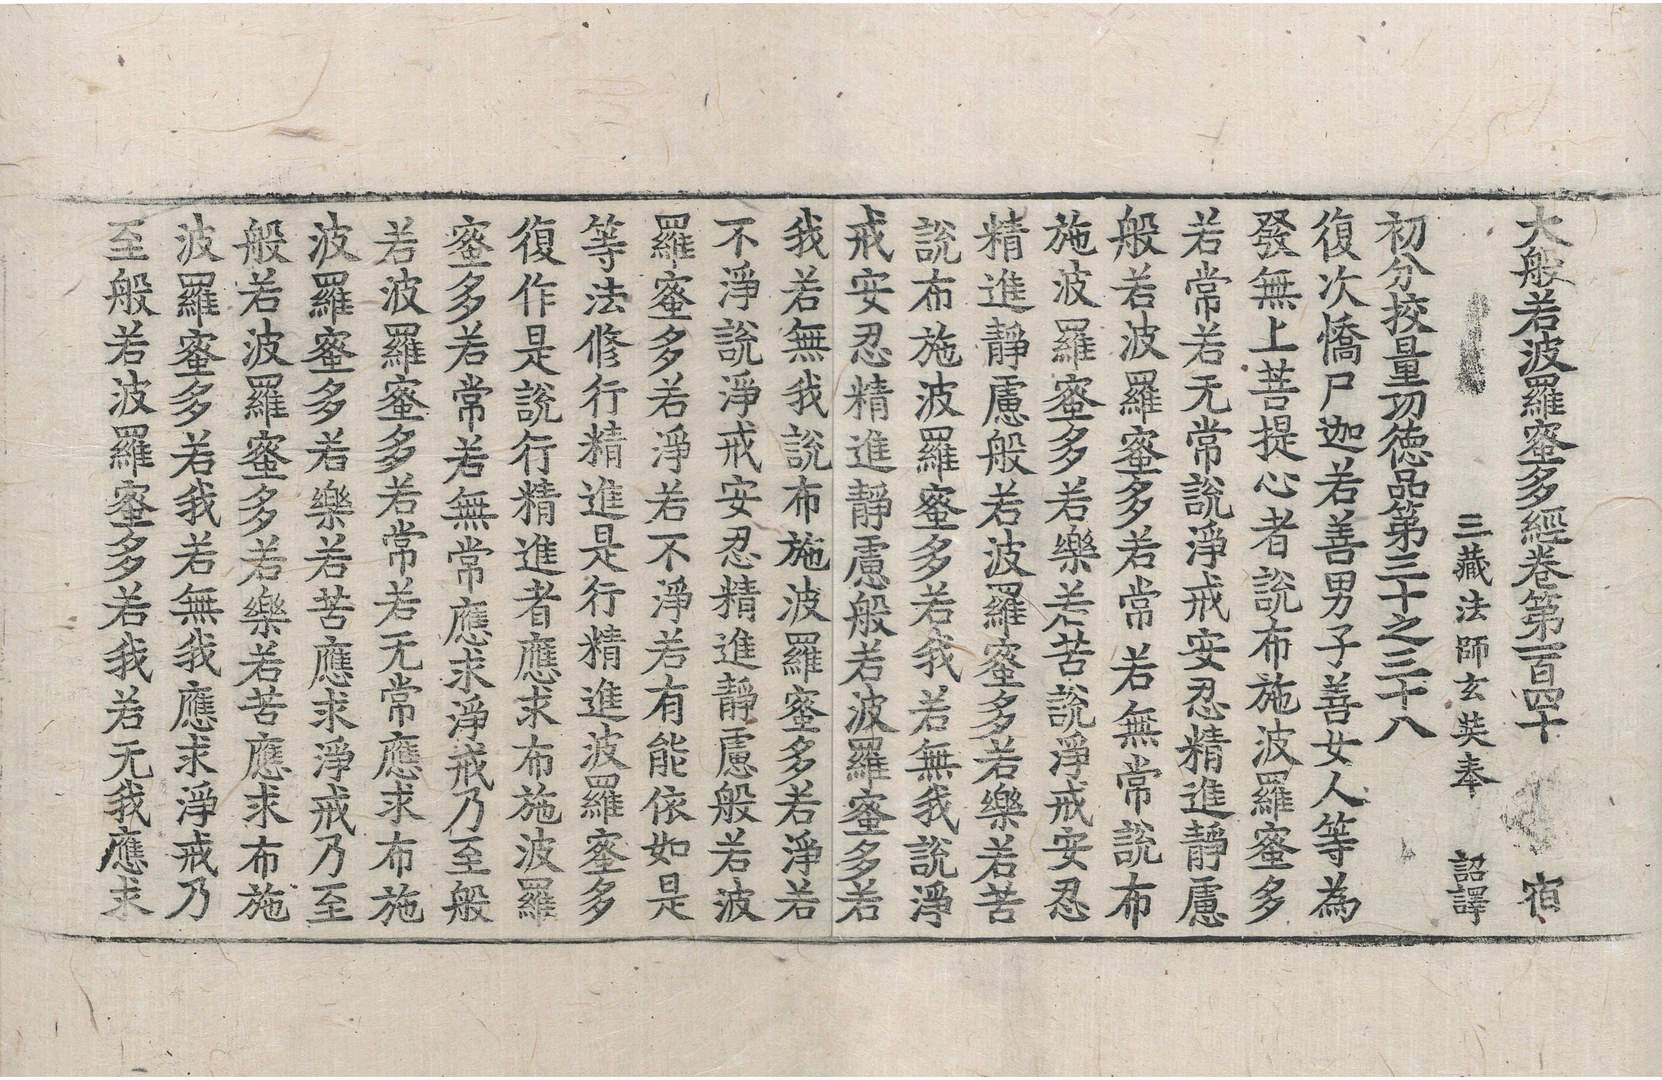 大般若波羅蜜多經卷第一百四十 宿
三藏法師玄奘奉 詔譯
初分挍量功德品第三十之三十八
復次憍尸迦若善男子善女人等為
發無上菩提心者說布施波羅蜜多
若常若无常說淨戒安忍精進靜慮
般若波羅蜜多若常若無常說布
施波羅蜜多若樂若苦說淨戒安忍
精進靜慮般若波羅蜜多若樂若苦
說布施波羅蜜多若我若無我說淨
戒安忍精進靜慮般若波羅蜜多若
我若無我說布施波羅蜜多若淨若
不淨說淨戒安忍精進靜慮般若波
羅蜜多若淨若不淨若有能依如是
等法修行精進是行精進波羅蜜多
復作是說行精進者應求布施波羅
蜜多若常若無常應求淨戒乃至般
若波羅蜜多若常若无常應求布施
波羅蜜多若樂若苦應求淨戒乃至
般若波羅蜜多若樂若苦應求布施
波羅蜜多若我若無我應求淨戒乃
至般若波羅蜜多若我若无我應求